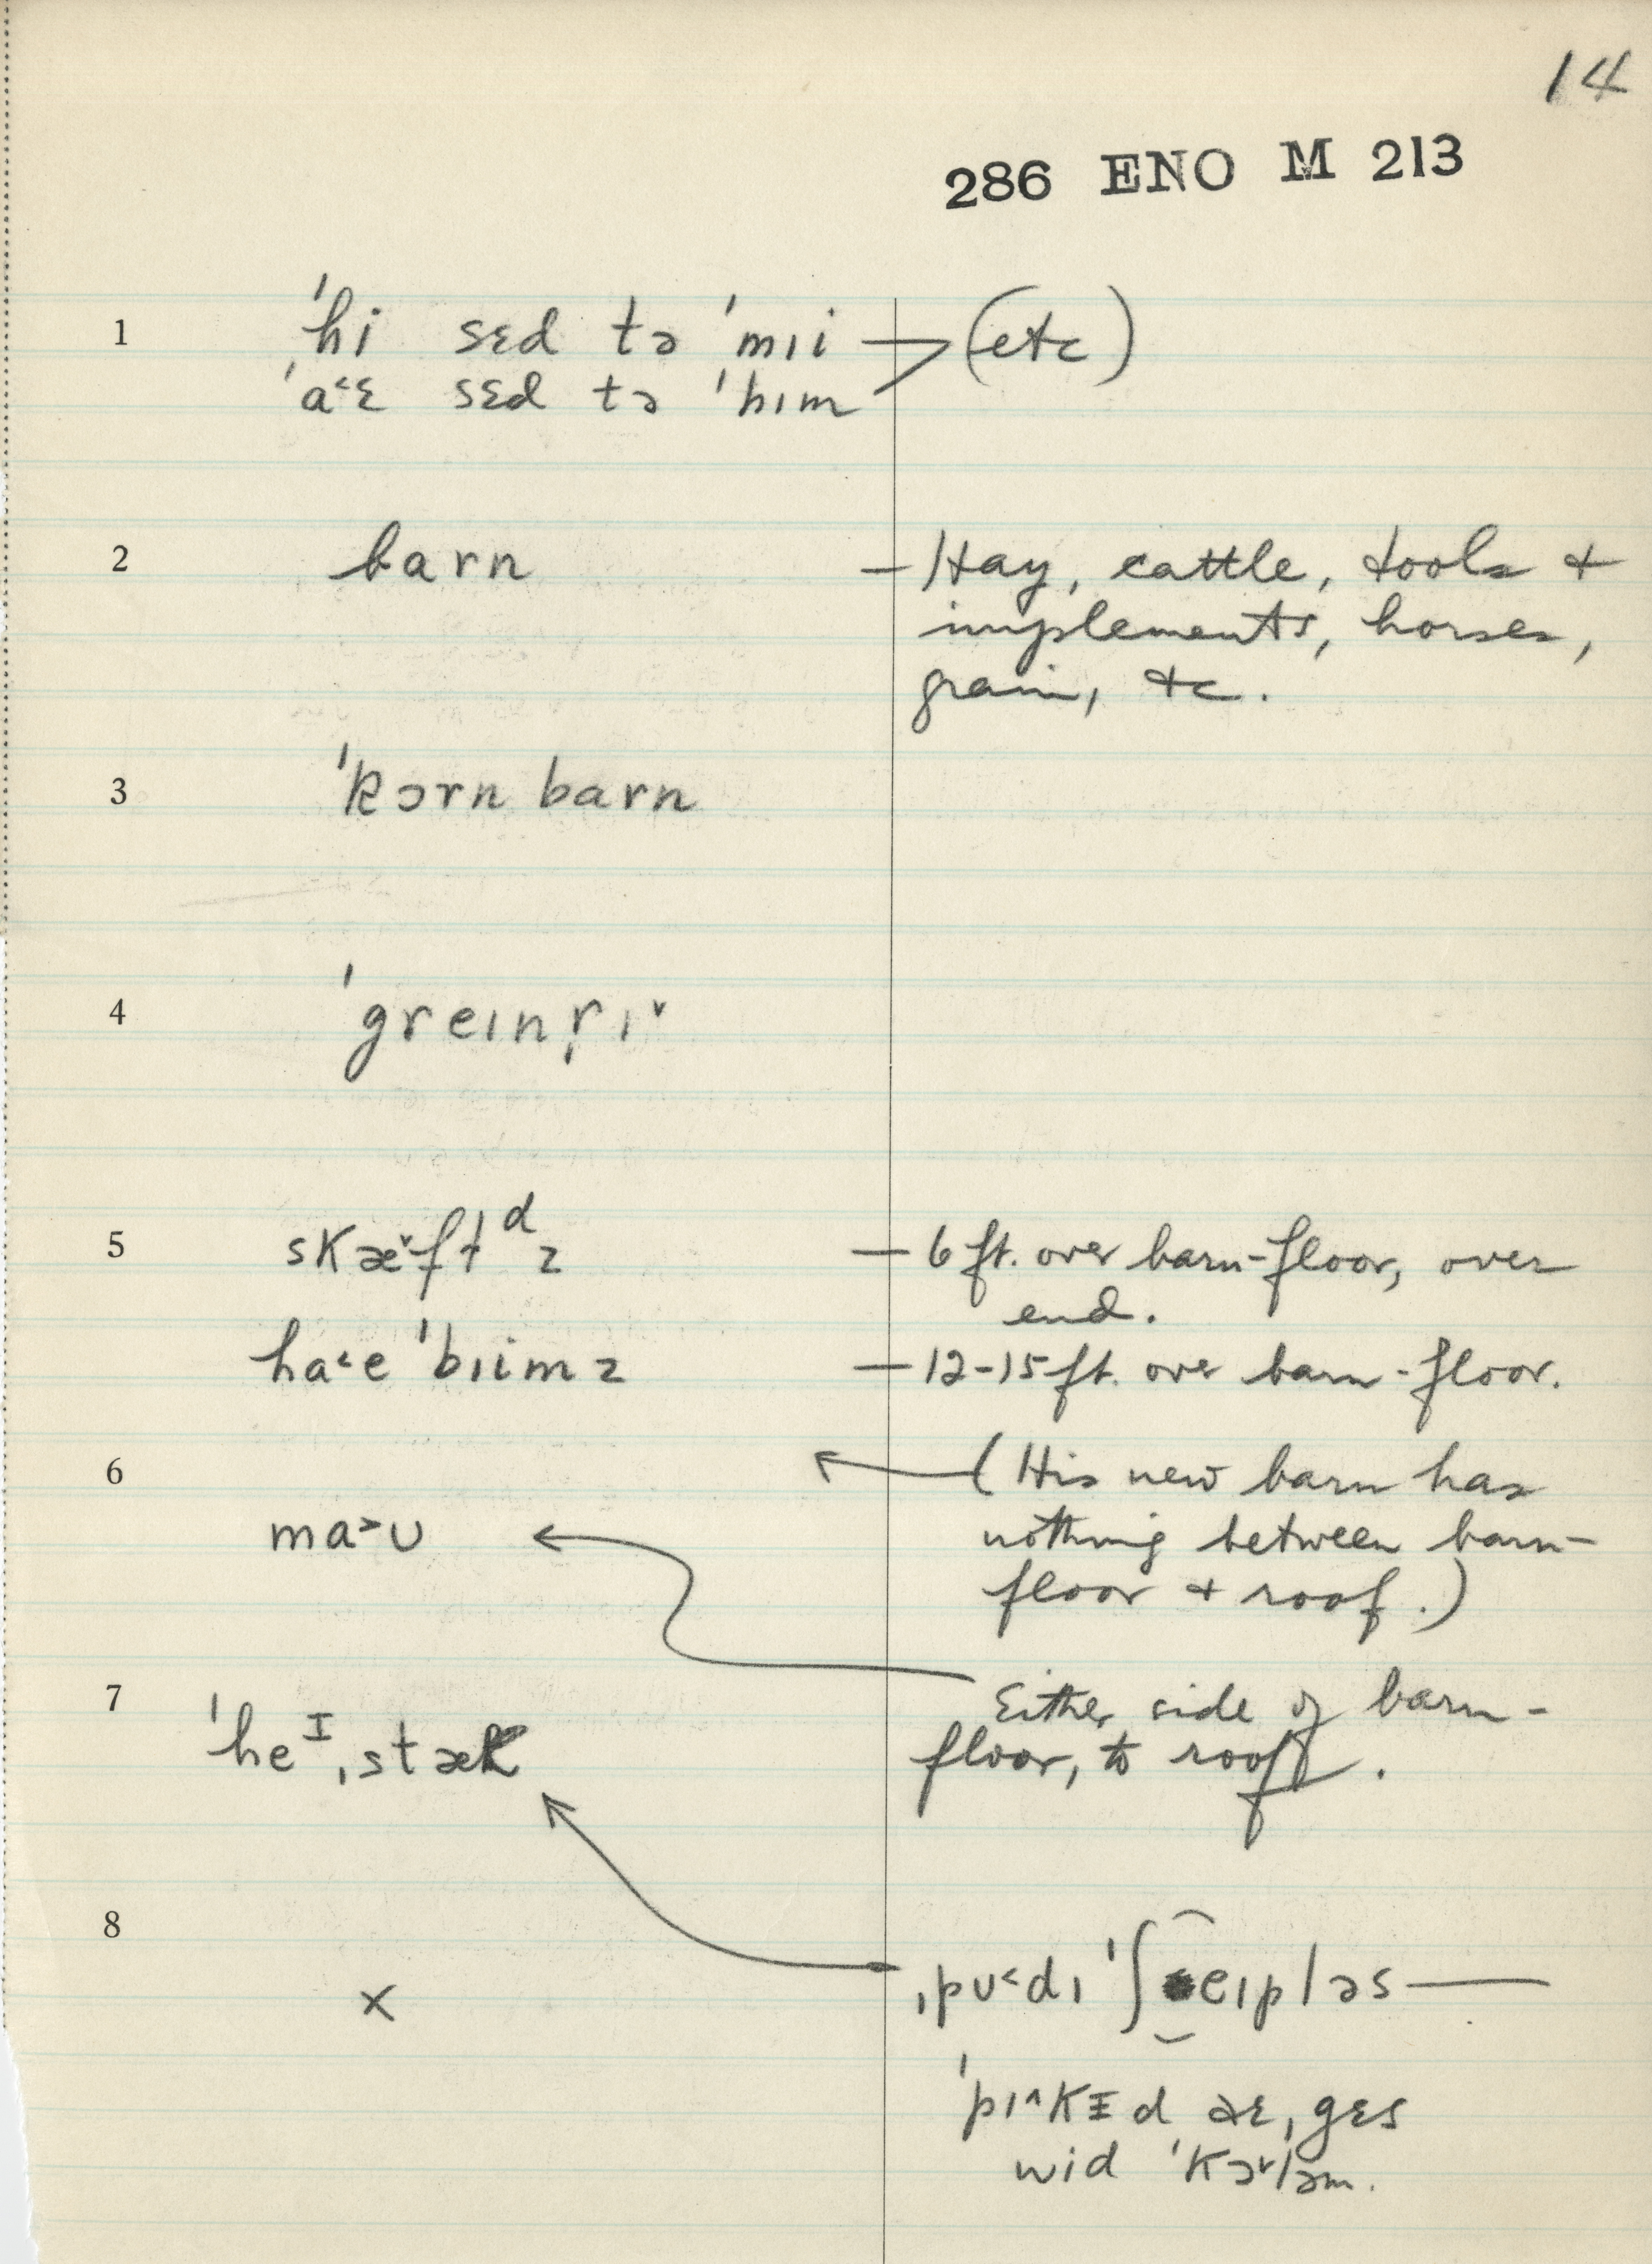 14
286 ENO M 213
1 'hi sɛd tə 'mɪi (etc)
'a˂ɛ sɛd tə 'hɪm
2 barn — Hay, cattle, tools +
implements, horses,
grain, etc.
3 'kɔrn barn
4 'greɪnr̩ɪ˅
5 skæ˅ftᵈz — 6 ft. over barn-floor, over
end.
ha˂e 'bɪimz — 12-15 ft. over barn-floor.
6 (His new barn has
nothing between barn-
floor + roof.)
ma˃ʊ
7 Either side of barn-
floor, to roof.
'heᴵˌstæk
8 ˌpʊ˂dɪ 'ʃeɪpləs —
x
'pɪ˄kɪd ɑɛˌgɛs
wid 'kɔ˅ləm.